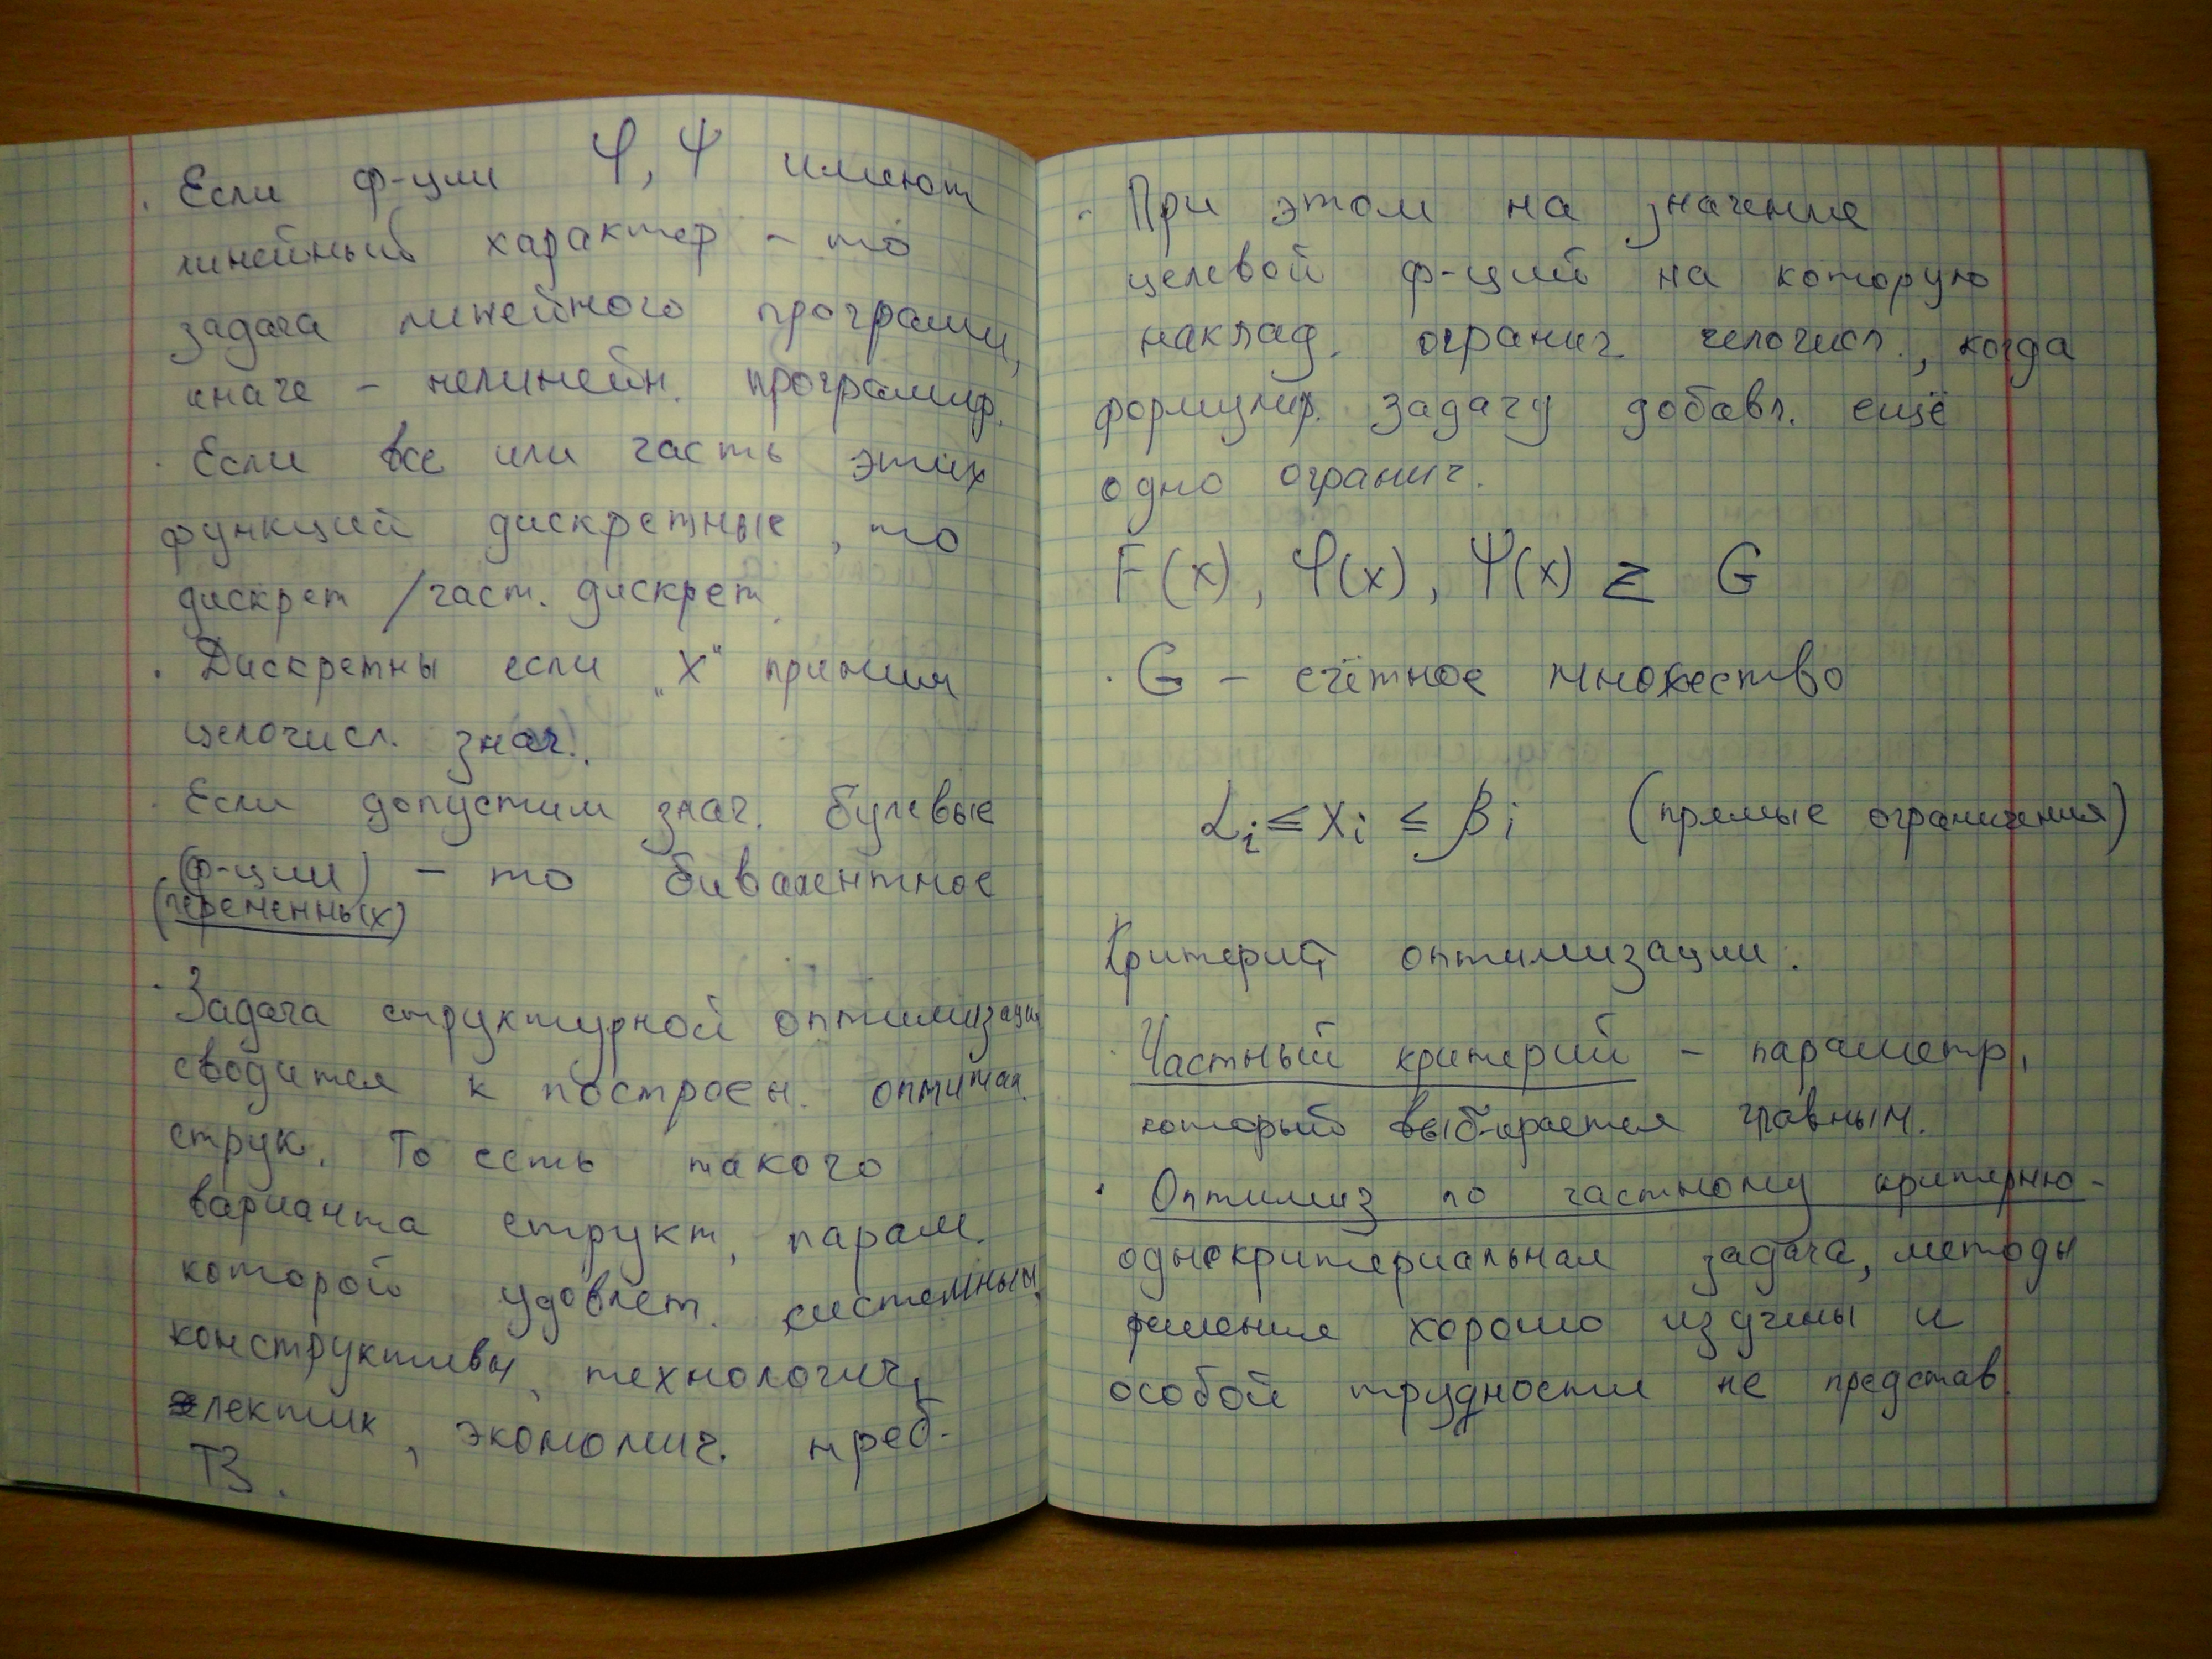 · Если ф-ции φ, ψ имеют
линейный характер - то
задача линейного программ,
иначе - нелинейн. программир.
· Если все или часть этих
функций дискретные, то
дискрет / част. дискрет.
· Дискретны если „X" приним
целочисл. знач..
· Если допустим знач. булевые
(ф-ции) - то бивалентное
(переменных)
· Задача структурной оптимизации
сводится к построен. оптимал.
струк. То есть такого
варианта структ, парам.
которой удовлет. системным,
конструктивн, технологич,
электик, экономич. треб.
ТЗ.
· При этом на значение
целевой ф-ций на которую
наклад. огранич. челочисл., когда
формулир. задачу добавл. ещё
одно огранич.
F(x), φ(x), Ψ(x) ≥ G
· G - счётное множество
α i ≤ xi ≤ βi (прямые ограничения)
Критерий оптимизации:
· Частный критерий - параметр,
который выбирается главным.
· Оптимиз по частному критерию -
однокритериальная задача, методы
решения хорошо изучены и
особой трудности не представ.